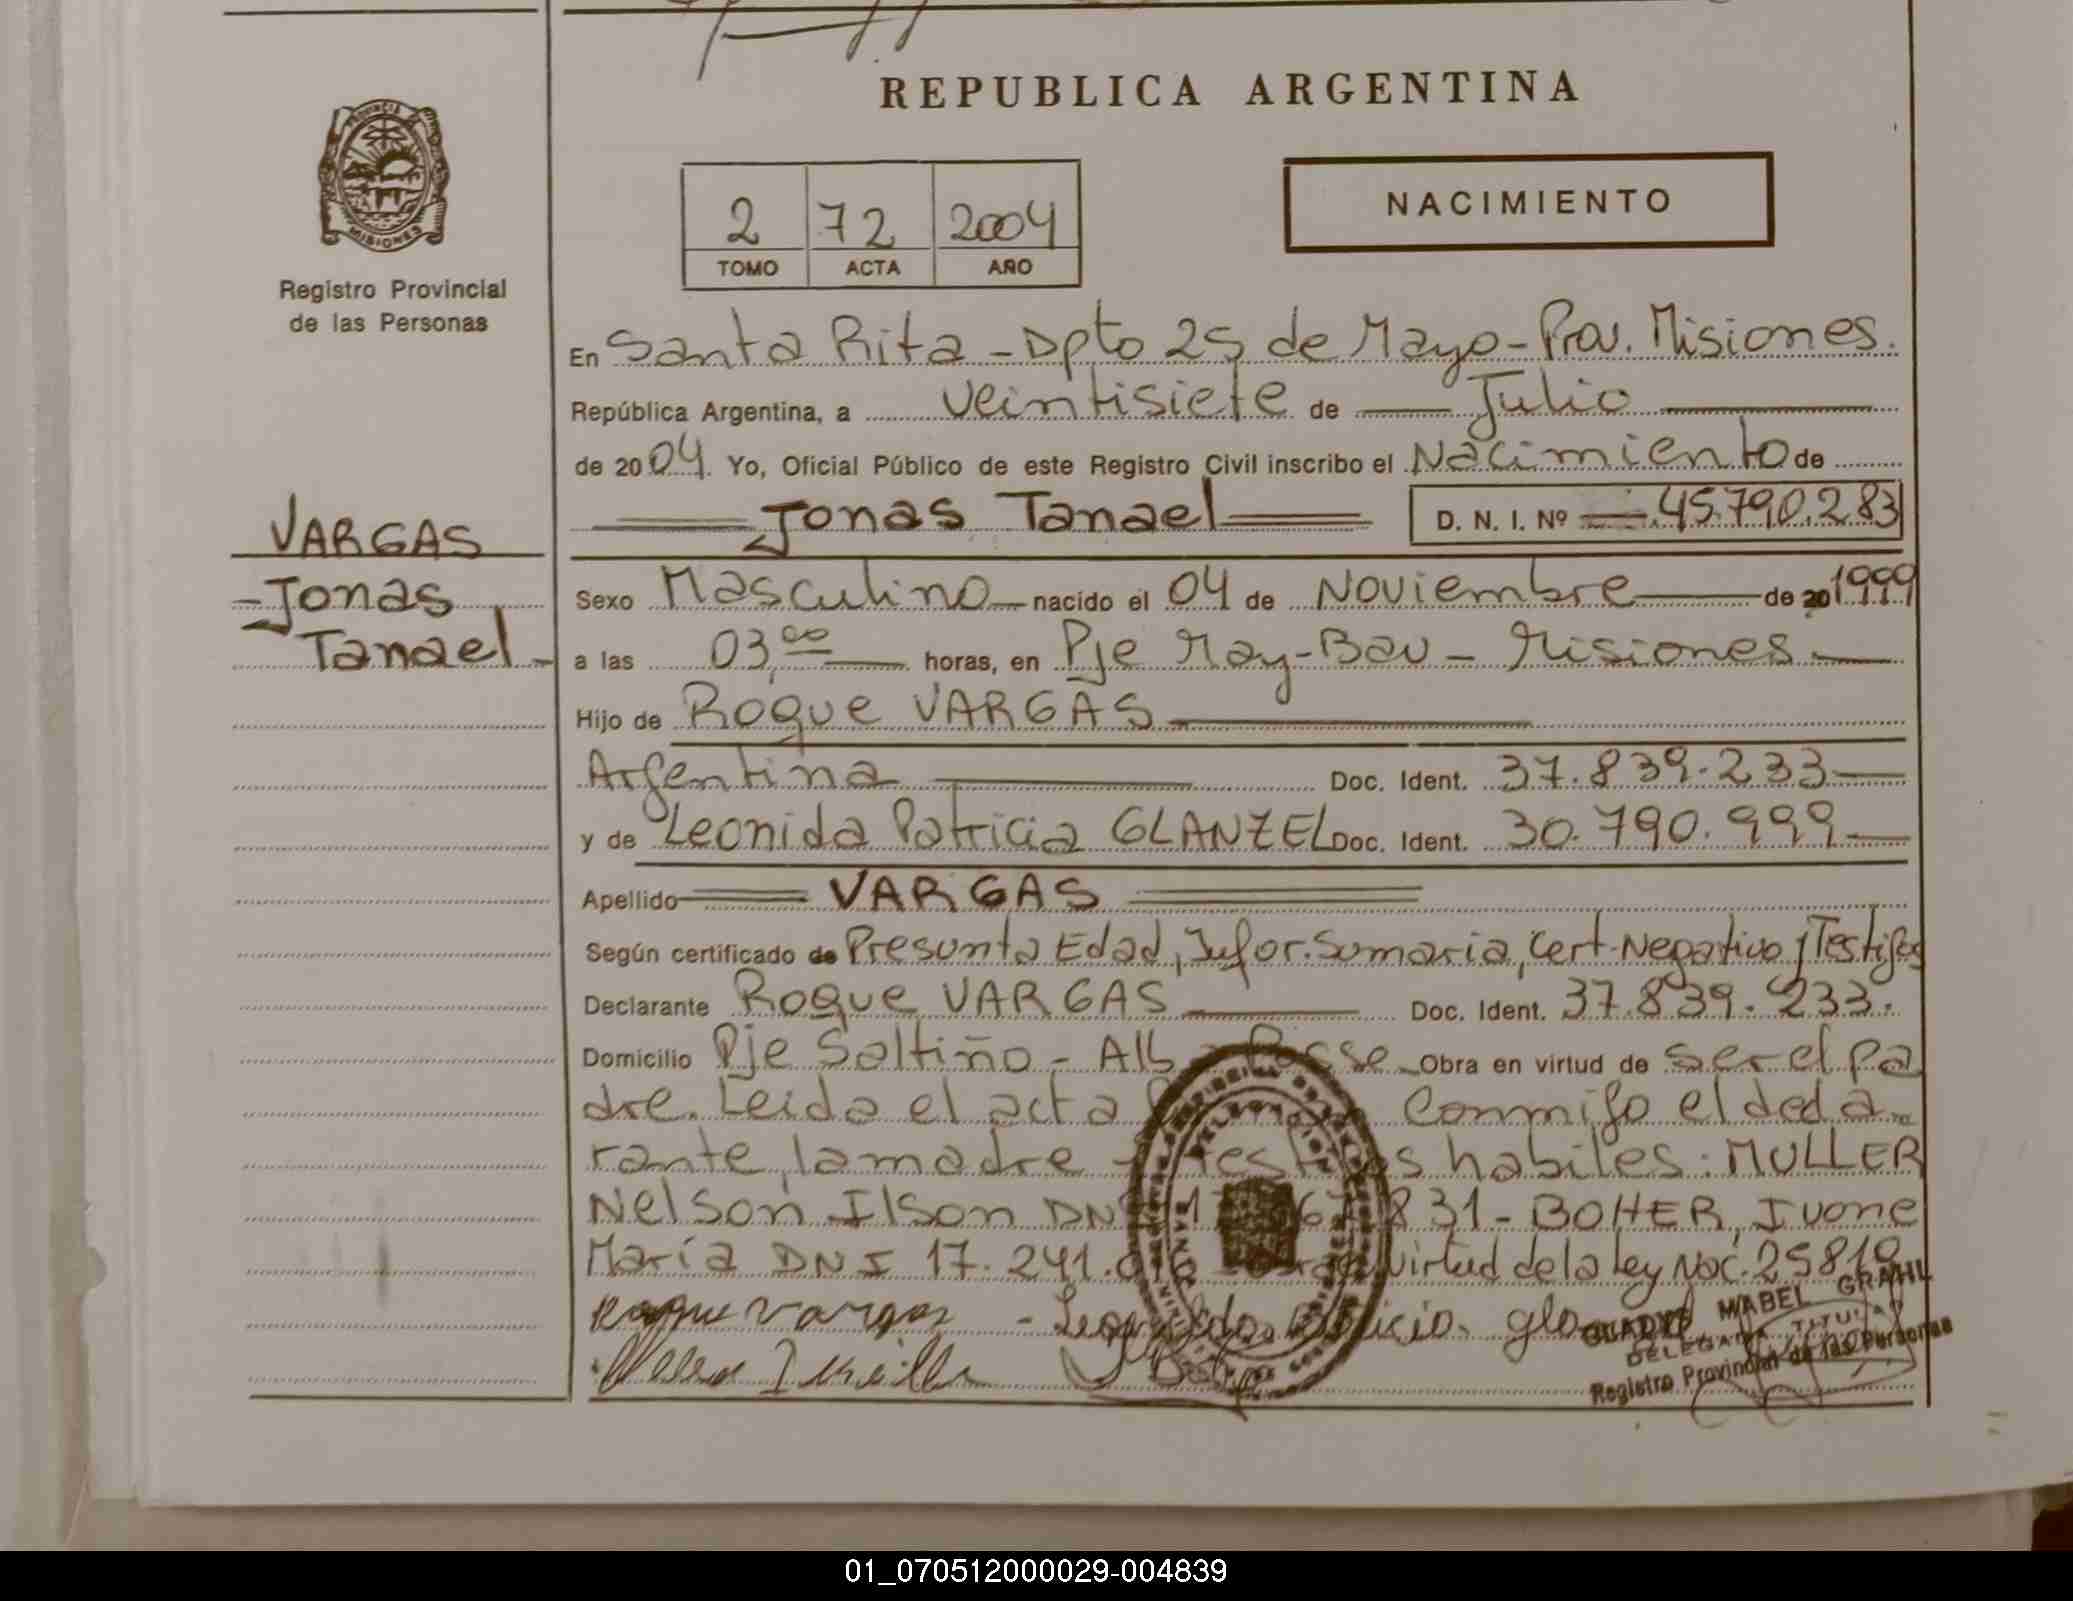 REPUBLICA ARGENTINA
PROVINCIA DE
MISIONES
Registro Provincial
de las Personas
2 72 2004
TOMO ACTA AÑO
NACIMIENTO
En Santa Rita - Dpto 25 de Mayo - Prov. Misiones.
República Argentina, a veintisiete de Julio
de 2004. Yo, Oficial Público de este Registro Civil inscribo el Nacimiento de
Jonas Tanael D. N. I. Nº 45.790.283
VARGAS
Jonas
Tanael
Sexo Masculino nacido el 04 de Noviembre de 20 1999
a las 03,00 horas, en Pje May-Bau - Misiones
Hijo de Roque VARGAS
Argentina Doc. Ident. 37.839.233
y de Leonida Patricia GLANZEL Doc. Ident. 30.790.999
Apellido VARGAS
Según certificado de Presunta Edad, Infor. Sumaria, Cert. Negativo y Testigos
Declarante Roque VARGAS Doc. Ident. 37.839.233.
Domicilio Pje Saltiño - Alb Posse Obra en virtud de ser el pa
dre. Leida el acta Conmigo el decla
rante, la madre y testigos habiles: MULLER
Nelson Ilson DNI 831 - BOHER, Ivone
Maria DNI 17.241. virtud de la Ley Nac. 25819
Roque Vargas - Leonida Patricia
GLADYS MABEL GRAHL
DELEGADA TITULAR
Registro Provincial de las Personas
01_070512000029-004839